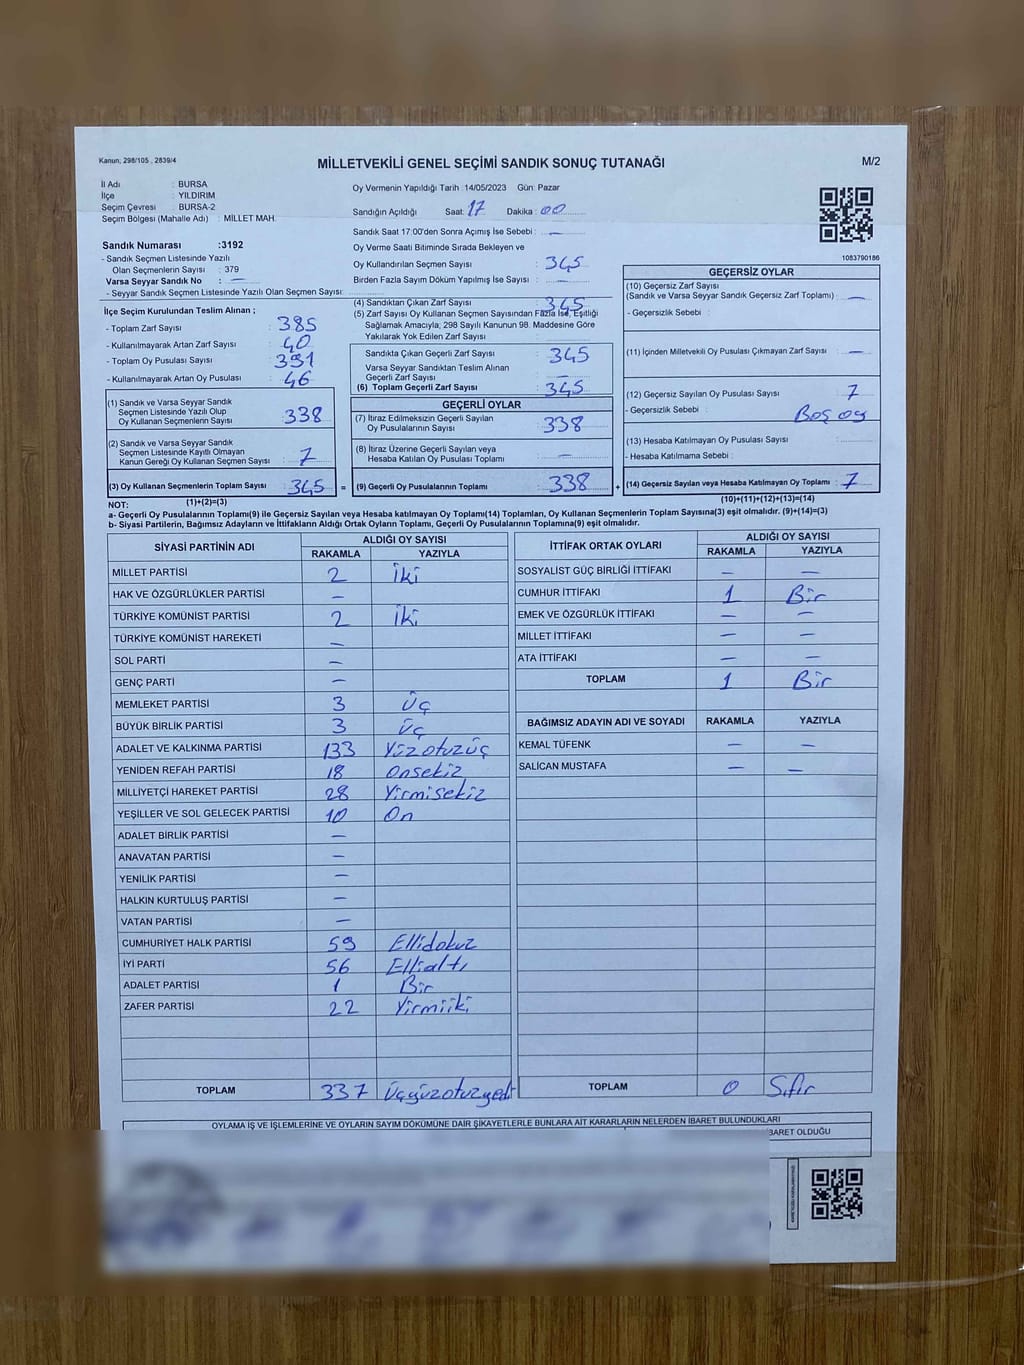 Kanun; 298/105 , 2839/4
MİLLETVEKİLİ GENEL SEÇİMİ SANDIK SONUÇ TUTANAĞI
M/2
İl Adı : BURSA
İlçe : YILDIRIM
Seçim Çevresi : BURSA-2
Seçim Bölgesi (Mahalle Adı) : MİLLET MAH.
Oy Vermenin Yapıldığı Tarih :14/05/2023 Gün: Pazar
Sandığın Açıldığı Saat: 17 Dakika : 00
Sandık Saat 17:00'den Sonra Açımış İse Sebebi : —
Oy Verme Saati Bitiminde Sırada Bekleyen ve
Oy Kullandırılan Seçmen Sayısı : 345
Birden Fazla Sayım Döküm Yapılmış İse Sayısı : —
1083790186
Sandık Numarası :3192
- Sandık Seçmen Listesinde Yazılı
Olan Seçmenlerin Sayısı : 379
Varsa Seyyar Sandık No : —
- Seyyar Sandık Seçmen Listesinde Yazılı Olan Seçmen Sayısı:
İlçe Seçim Kurulundan Teslim Alınan ;
- Toplam Zarf Sayısı : 385
- Kullanılmayarak Artan Zarf Sayısı : 40
- Toplam Oy Pusulası Sayısı : 391
- Kullanılmayarak Artan Oy Pusulası : 46
(1) Sandık ve Varsa Seyyar Sandık
Seçmen Listesinde Yazılı Olup
Oy Kullanan Seçmenlerin Sayısı : 338
(2) Sandık ve Varsa Seyyar Sandık
Seçmen Listesinde Kayıtlı Olmayan
Kanun Gereği Oy Kullanan Seçmen Sayısı : 7
(3) Oy Kullanan Seçmenlerin Toplam Sayısı : 345 =
(4) Sandıktan Çıkan Zarf Sayısı : 345
(5) Zarf Sayısı Oy Kullanan Seçmen Sayısından Fazla İse, Eşitliği
Sağlamak Amacıyla, 298 Sayılı Kanunun 98. Maddesine Göre
Yakılarak Yok Edilen Zarf Sayısı :
Sandıkta Çıkan Geçerli Zarf Sayısı : 345
Varsa Seyyar Sandıktan Teslim Alınan
Geçerli Zarf Sayısı : —
(6) Toplam Geçerli Zarf Sayısı : 345
GEÇERLİ OYLAR
(7) İtiraz Edilmeksizin Geçerli Sayılan
Oy Pusulalarının Sayısı : 338
(8) İtiraz Üzerine Geçerli Sayılan veya
Hesaba Katılan Oy Pusulası Toplamı : —
(9) Geçerli Oy Pusulalarının Toplamı : 338 +
GEÇERSİZ OYLAR
(10) Geçersiz Zarf Sayısı
(Sandık ve Varsa Seyyar Sandık Geçersiz Zarf Toplamı) : —
- Geçersizlik Sebebi :
(11) İçinden Milletvekili Oy Pusulası Çıkmayan Zarf Sayısı : —
(12) Geçersiz Sayılan Oy Pusulası Sayısı : 7
- Geçersizlik Sebebi : Boş oy
(13) Hesaba Katılmayan Oy Pusulası Sayısı :
- Hesaba Katılmama Sebebi :
(14) Geçersiz Sayılan veya Hesaba Katılmayan Oy Toplamı : 7
NOT: (1)+(2)=(3) (10)+(11)+(12)+(13)=(14)
a- Geçerli Oy Pusulalarının Toplamı(9) ile Geçersiz Sayılan veya Hesaba katılmayan Oy Toplamı(14) Toplamları, Oy Kullanan Seçmenlerin Toplam Sayısına(3) eşit olmalıdır. (9)+(14)=(3)
b- Siyasi Partilerin, Bağımsız Adayların ve İttifakların Aldığı Ortak Oyların Toplamı, Geçerli Oy Pusulalarının Toplamına(9) eşit olmalıdır.
SİYASİ PARTİNİN ADI ALDIĞI OY SAYISI
RAKAMLA YAZIYLA
MİLLET PARTİSİ 2 iki
HAK VE ÖZGÜRLÜKLER PARTİSİ —
TÜRKİYE KOMÜNİST PARTİSİ 2 iki
TÜRKİYE KOMÜNİST HAREKETİ —
SOL PARTİ —
GENÇ PARTİ —
MEMLEKET PARTİSİ 3 üç
BÜYÜK BİRLİK PARTİSİ 3 üç
ADALET VE KALKINMA PARTİSİ 133 Yüzotuzüç
YENİDEN REFAH PARTİSİ 18 Onsekiz
MİLLİYETÇİ HAREKET PARTİSİ 28 Yirmisekiz
YEŞİLLER VE SOL GELECEK PARTİSİ 10 On
ADALET BİRLİK PARTİSİ —
ANAVATAN PARTİSİ —
YENİLİK PARTİSİ —
HALKIN KURTULUŞ PARTİSİ —
VATAN PARTİSİ —
CUMHURİYET HALK PARTİSİ 59 Ellidokuz
İYİ PARTİ 56 Ellialtı
ADALET PARTİSİ 1 Bir
ZAFER PARTİSİ 22 Yirmiiki
TOPLAM 337 üçyüzotuzyedi
İTTİFAK ORTAK OYLARI ALDIĞI OY SAYISI
RAKAMLA YAZIYLA
SOSYALİST GÜÇ BİRLİĞİ İTTİFAKI — —
CUMHUR İTTİFAKI 1 Bir
EMEK VE ÖZGÜRLÜK İTTİFAKI — —
MİLLET İTTİFAKI — —
ATA İTTİFAKI — —
TOPLAM 1 Bir
BAĞIMSIZ ADAYIN ADI VE SOYADI RAKAMLA YAZIYLA
KEMAL TÜFENK — —
SALİCAN MUSTAFA — —
TOPLAM 0 Sıfır
OYLAMA İŞ VE İŞLEMLERİNE VE OYLARIN SAYIM DÖKÜMÜNE DAİR ŞİKAYETLERLE BUNLARA AİT KARARLARIN NELERDEN İBARET BULUNDUKLARI
İBARET OLDUĞU